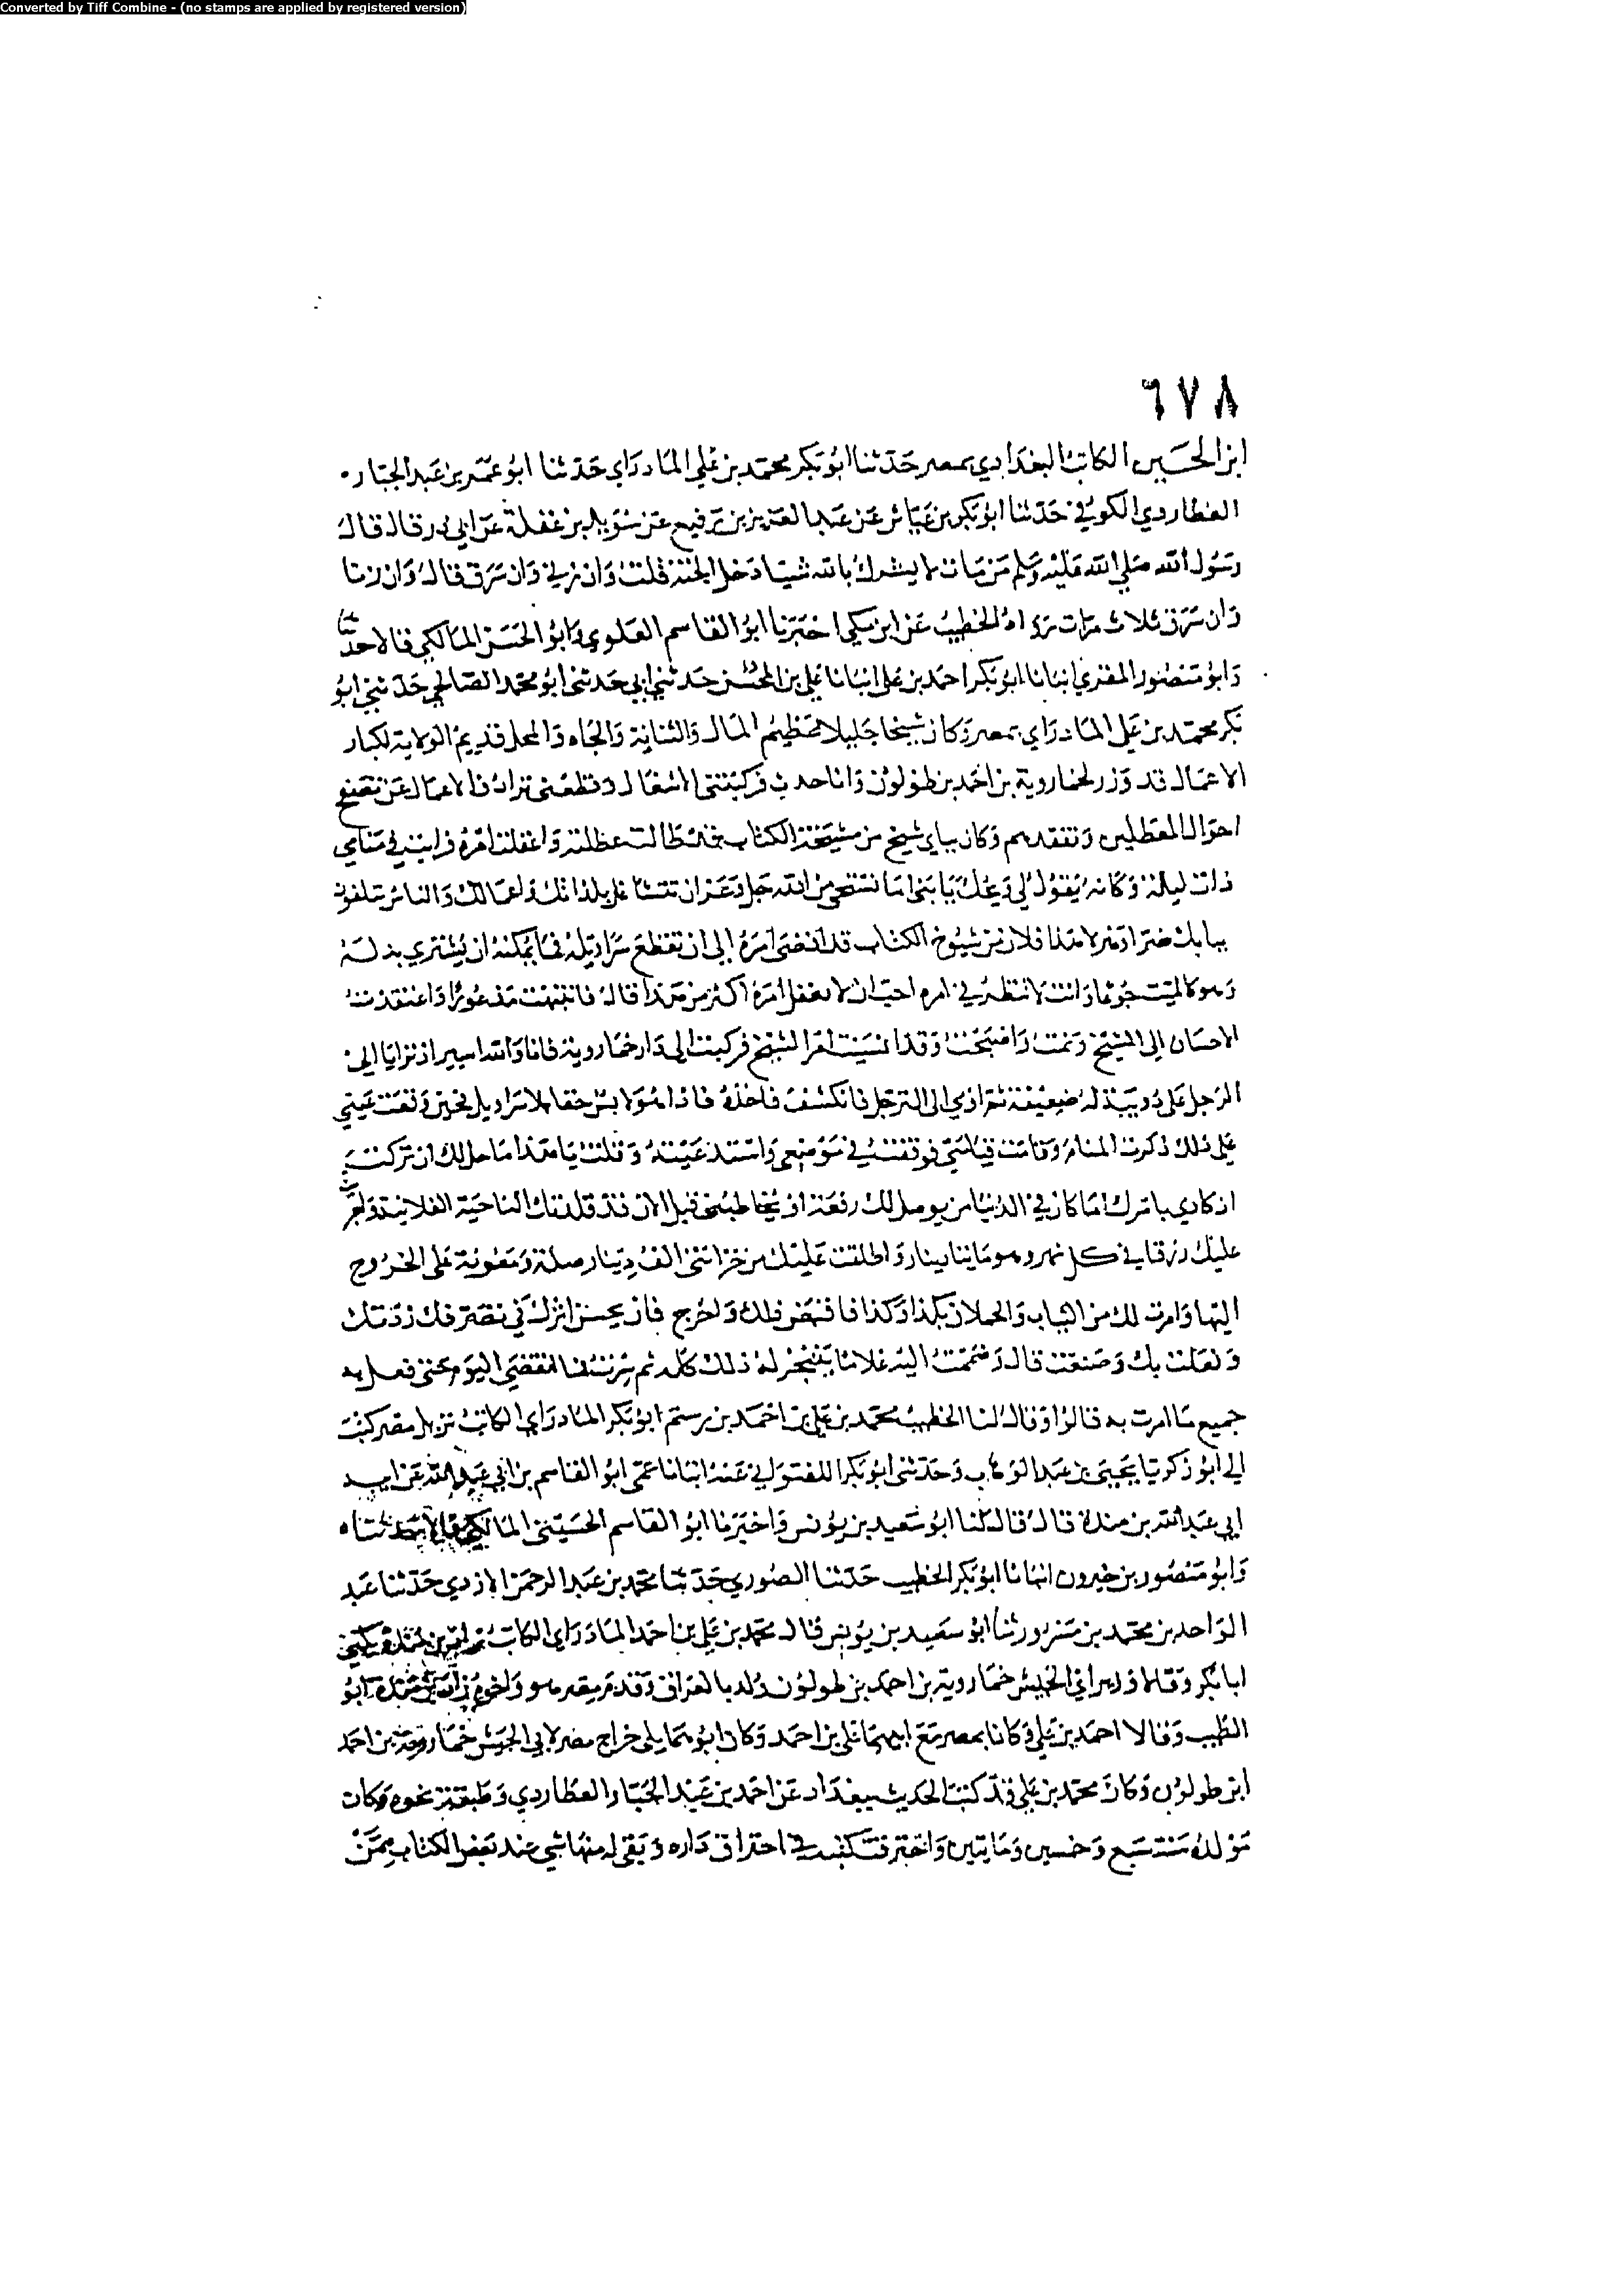 Converted by Tiff Combine - (no stamps are applied by registered version)
٦٧٨
ابن الحسين الكاتب البغدادي بمصر حدثنا ابو بكر محمد بن علي المادراي حدثنا ابو عمر بن عبد الجبار
العطاردي الكوفي حدثنا ابو بكر بن عياش عن عبد العزيز بن رفيع عن سويد بن غفلة عن ابي ذر قال قال
رسول الله صلى الله عليه وسلم من مات لا يشرك بالله شيا دخل الجنة قلت وان زني وان سرق قال وان زنا
وان سرق ثلاث مرات رواه الخطيب عن ابن مكي اخبرنا ابو القاسم العلوي وابو الحسن المالكي قالا حدثنا
وابو منصور المقري انبانا ابو بكر احمد بن علي انبانا علي بن المحسن حدثني ابي حدثني ابو محمد الصالحي حدثني ابو
بكر محمد بن علي المادراي بمصر وكان شيخا جليلا عظيم المال والجاه والمحل قديم الولاية لكبار
الاعمال قد وزر لخمارويه بن احمد بن طولون وانا حدث فركبتني الاشغال وقطعني ترادف الاعمال عن تصفح
احوال المعطلين وتفقدهم وكان ببابي شيخ من مشيخة الكتاب قد طالت عطلته واغفلت امره فرايت في منامي
ذات ليلة وكانه يقول لي ويحك يا بني اما تستحي من الله جل وعز ان تتشاغل بلذاتك واعمالك والناس يتلفون
ببابك ضرا وهزلا هذا فلان من شيوخ الكتاب قد افضى امره الى ان تقطع سراويله فما يمكنه ان يشتري بدله
وهو كالميت جوعا وانت لا تنظر في امره احب ان لا تغفل امره اكثر من هذا قال فانتبهت مذعورا واعتقدت
الاحسان الى الشيخ ونمت واصبحت وقد انسيت امر الشيخ فركبت الى دار خمارويه فانا والله اسير اذ ترايا الى
الرجل على دويبة له ضعيفة ثم اوى الى الترجل فانكشف فخذه فاذا هو لابس خفا بلا سراويل فحين وقعت عيني
على ذلك ذكرت المنام وقامت قيامتي فوقفت في موضعي واستدعيته وقلت يا هذا ما حل لك ان تركت
اذكاري بامرك اما كان في الدنيا من يوصل لك رقعة او يخاطبني قبل الان قد قلدتك الناحية الفلانية واجريت
عليك رزقا في كل شهر وهو مايتا دينار واطلقت عليك من خزانتي الف دينار صلة ومعونة على الخروج
اليها وامرت لك من الثياب والحملان بكذا وكذا فانهض واخرج فان يحسن اثرك في تصرفك زدتك
وفعلت بك وصنعت قال وضممت اليه غلاما يتنجز له ذلك كله ثم سرت فما انقضى اليوم حتى فعل به
جميع ما امرت به قالوا وقال لنا الخطيب محمد بن علي بن احمد بن رستم ابو بكر المادراي الكاتب نزيل مصر كتب
الي ابو زكريا يحيى بن عبد الوهاب وحدثني ابو بكر اللفتواني عنه انبانا عمي ابو القاسم بن ابي عبد الله عن ابيه
ابي عبد الله بن منده قال قال لنا ابو سعيد بن يونس واخبرنا ابو القاسم الحسيني المالكي قالا حدثناه
وابو منصور بن خيرون انبانا ابو بكر الخطيب حدثنا الصوري حدثنا محمد بن عبد الرحمن الازدي حدثنا عبد
الواحد بن محمد بن مسرور ثنا ابو سعيد بن يونس قال محمد بن علي بن احمد المادراي الكاتب يكنى
ابا بكر وقالا وزر لابي الجيش خمارويه بن احمد بن طولون ولد بالعراق وقدم مصر هو واخوه ابو
الطيب وقالا احمد بن علي وكانا بمصر مع ابيهما علي بن احمد وكان ابوهما يلي خراج مصر لابي الجيش خمارويه بن احمد
ابن طولون وكان محمد بن علي قد كتب الحديث ببغداد عن احمد بن عبد الجبار العطاردي وطبقة نحوه وكان
مولده سنة سبع وخمسين ومايتين واحترقت كتبه في احتراق داره وبقي له منها شي عند بعض الكتاب ممن